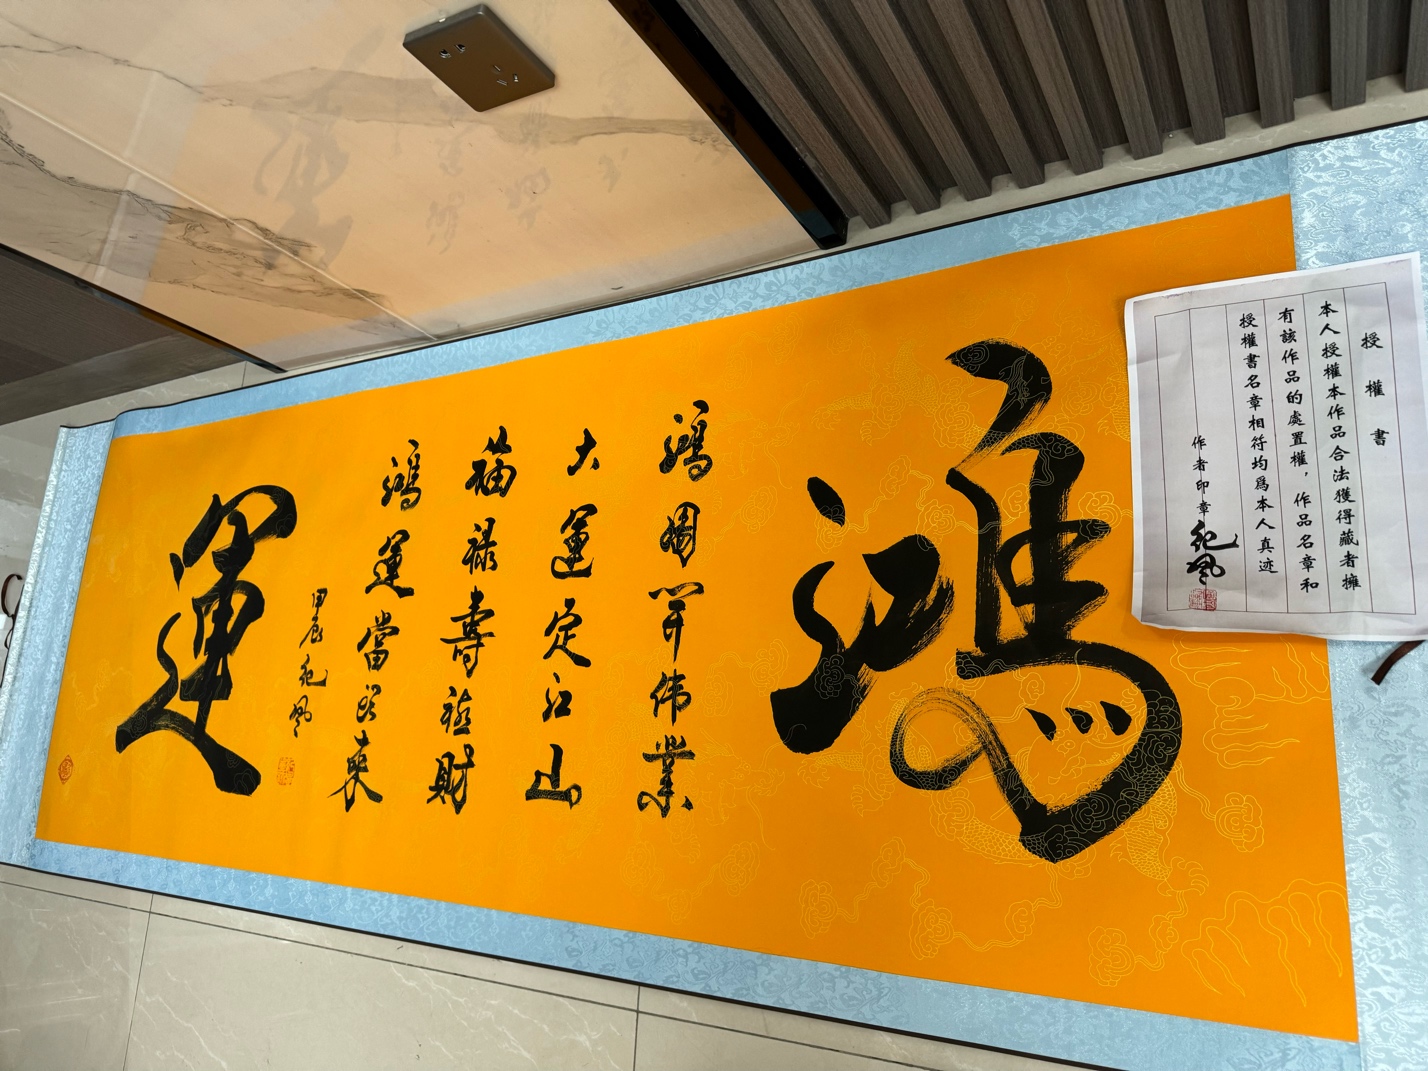 授權書
本人授權本作品合法獲得藏者擁
有該作品的處置權，作品名章和
授權書名章相符均爲本人真迹
作者印章
鴻
鴻圖開伟業
大運定江山
福禄壽禧財
鴻運當頭來
甲辰
運